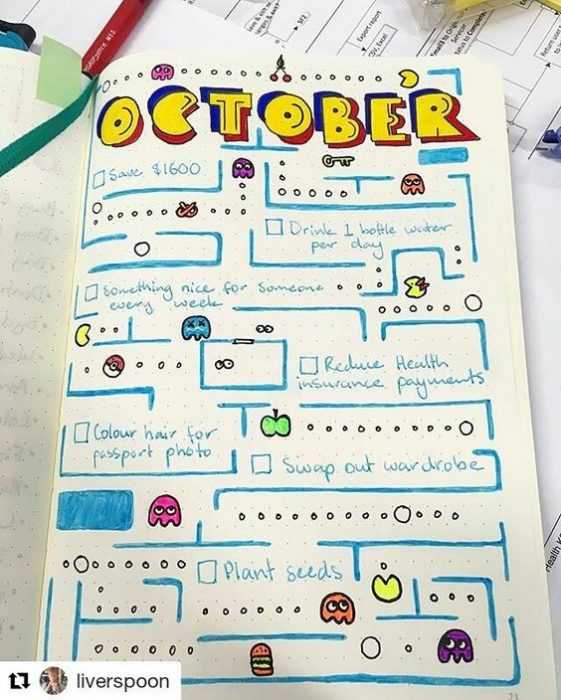 OCTOBER
Save $1600
Drink 1 bottle water
per day
Something nice for someone
every week
Reduce Health
insurance payments
Colour hair for
passport photo
Swap out wardrobe
Plant seeds
liverspoon
Export report
CSV, Excel